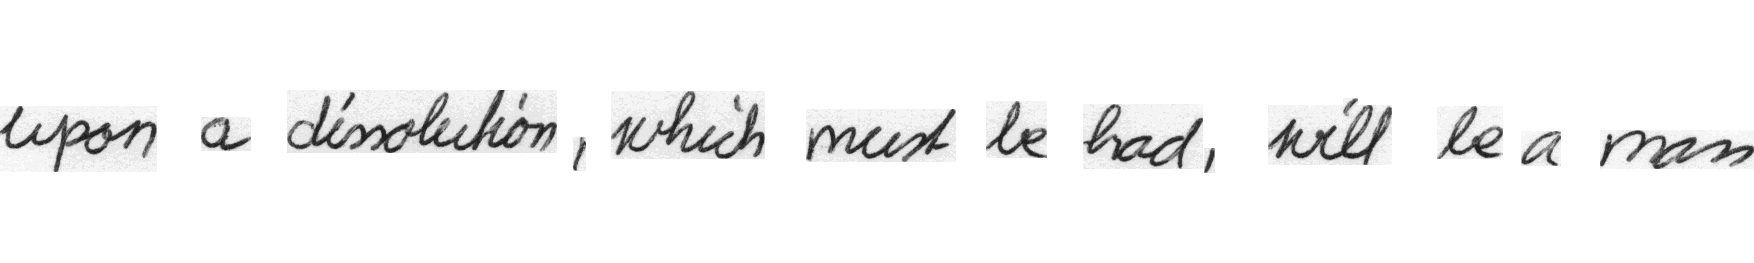 upon a dissolution, which must be had, will be a mass